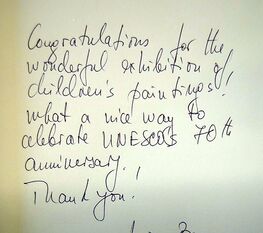 Congratulations for the
wonderful exhibition of
children's paintings!
what a nice way to
celebrate UNESCO's 70th
anniversary.,
Thank you.